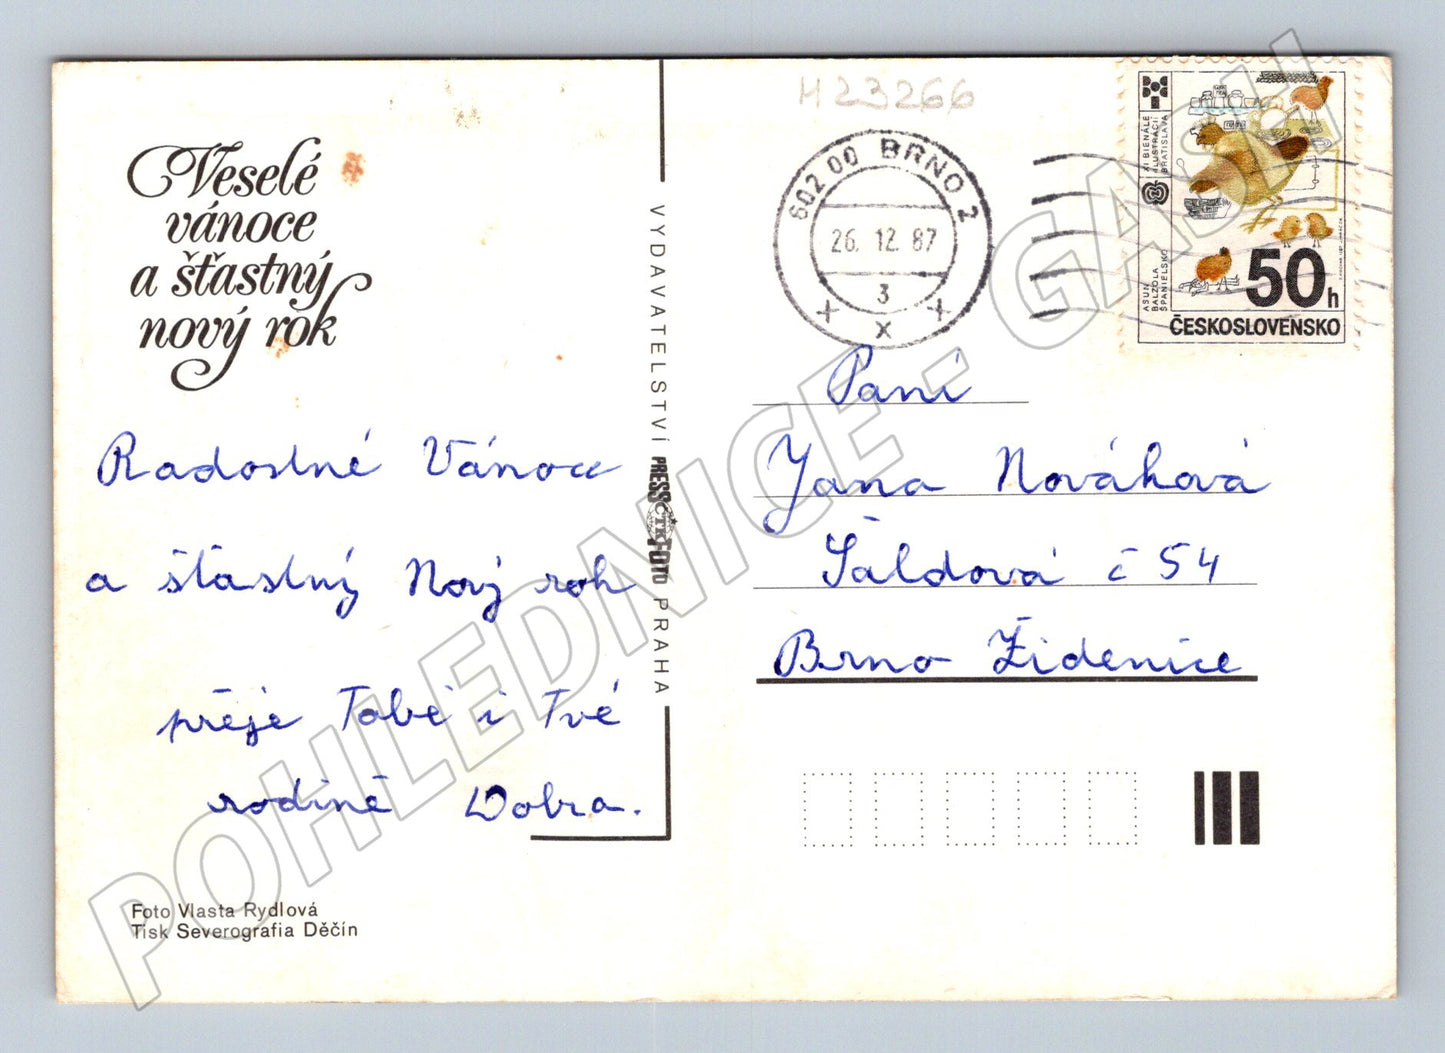 Veselé
vánoce
a šťastný
nový rok
Radostné Vánoce
a šťastný Nový rok
přeje Tobě i Tvé
rodině Dobra.
Foto Vlasta Rydlová
Tisk Severografia Děčín
VYDAVATELSTVÍ PRESSFOTO PRAHA
ČTK
H23266
602 00 BRNO 2
26. 12. 87
3
x x x
XI BIENÁLE
ILUSTRÁCIÍ
BRATISLAVA
ASUN
BALZOLA
ŠPANIELSKO
50h
ČESKOSLOVENSKO
Paní
Jana Nováková
Šaldová č 54
Brno Židenice
POHLEDNICE - GASH